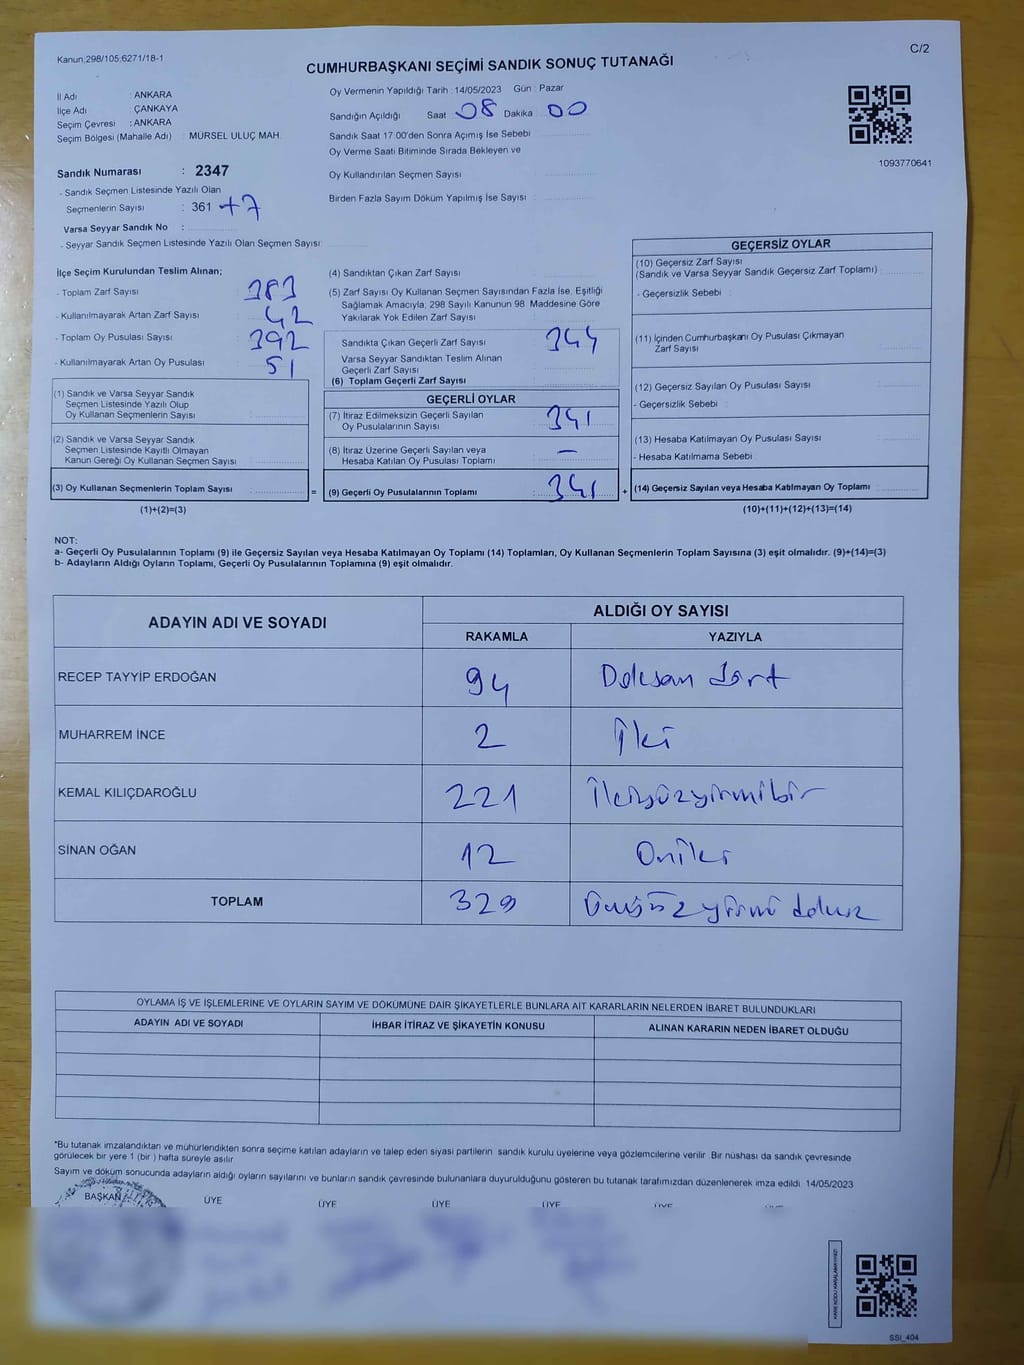 Kanun;298/105;6271/18-1
C/2
CUMHURBAŞKANI SEÇİMİ SANDIK SONUÇ TUTANAĞI
İl Adı : ANKARA
İlçe Adı : ÇANKAYA
Seçim Çevresi : ANKARA
Seçim Bölgesi (Mahalle Adı) : MÜRSEL ULUÇ MAH.
Sandık Numarası : 2347
- Sandık Seçmen Listesinde Yazılı Olan
Seçmenlerin Sayısı : 361 +7
Varsa Seyyar Sandık No :
- Seyyar Sandık Seçmen Listesinde Yazılı Olan Seçmen Sayısı:
Oy Vermenin Yapıldığı Tarih : 14/05/2023 Gün : Pazar
Sandığın Açıldığı Saat : 08 Dakika : 00
Sandık Saat 17.00'den Sonra Açımış İse Sebebi
Oy Verme Saati Bitiminde Sırada Bekleyen ve
Oy Kullandırılan Seçmen Sayısı
Birden Fazla Sayım Döküm Yapılmış İse Sayısı :
1093770641
İlçe Seçim Kurulundan Teslim Alınan;
- Toplam Zarf Sayısı 383
- Kullanılmayarak Artan Zarf Sayısı 42
- Toplam Oy Pusulası Sayısı 392
- Kullanılmayarak Artan Oy Pusulası 51
(1) Sandık ve Varsa Seyyar Sandık
Seçmen Listesinde Yazılı Olup
Oy Kullanan Seçmenlerin Sayısı
(2) Sandık ve Varsa Seyyar Sandık
Seçmen Listesinde Kayıtlı Olmayan
Kanun Gereği Oy Kullanan Seçmen Sayısı
(3) Oy Kullanan Seçmenlerin Toplam Sayısı
(1)+(2)=(3)
(4) Sandıktan Çıkan Zarf Sayısı
(5) Zarf Sayısı Oy Kullanan Seçmen Sayısından Fazla İse, Eşitliği
Sağlamak Amacıyla; 298 Sayılı Kanunun 98. Maddesine Göre
Yakılarak Yok Edilen Zarf Sayısı
Sandıkta Çıkan Geçerli Zarf Sayısı 344
Varsa Seyyar Sandıktan Teslim Alınan
Geçerli Zarf Sayısı
(6) Toplam Geçerli Zarf Sayısı
GEÇERLİ OYLAR
(7) İtiraz Edilmeksizin Geçerli Sayılan
Oy Pusulalarının Sayısı 341
(8) İtiraz Üzerine Geçerli Sayılan veya
Hesaba Katılan Oy Pusulası Toplamı —
= (9) Geçerli Oy Pusulalarının Toplamı 341 +
GEÇERSİZ OYLAR
(10) Geçersiz Zarf Sayısı
(Sandık ve Varsa Seyyar Sandık Geçersiz Zarf Toplamı)
- Geçersizlik Sebebi :
(11) İçinden Cumhurbaşkanı Oy Pusulası Çıkmayan
Zarf Sayısı
(12) Geçersiz Sayılan Oy Pusulası Sayısı
- Geçersizlik Sebebi :
(13) Hesaba Katılmayan Oy Pusulası Sayısı
- Hesaba Katılmama Sebebi
(14) Geçersiz Sayılan veya Hesaba Katılmayan Oy Toplamı
(10)+(11)+(12)+(13)=(14)
NOT:
a- Geçerli Oy Pusulalarının Toplamı (9) ile Geçersiz Sayılan veya Hesaba Katılmayan Oy Toplamı (14) Toplamları, Oy Kullanan Seçmenlerin Toplam Sayısına (3) eşit olmalıdır. (9)+(14)=(3)
b- Adayların Aldığı Oyların Toplamı, Geçerli Oy Pusulalarının Toplamına (9) eşit olmalıdır.
ADAYIN ADI VE SOYADI ALDIĞI OY SAYISI
RAKAMLA YAZIYLA
RECEP TAYYİP ERDOĞAN 94 Doksan dört
MUHARREM İNCE 2 İki
KEMAL KILIÇDAROĞLU 221 İkiyüzyirmibir
SİNAN OĞAN 12 Oniki
TOPLAM 329 Üçyüzyirmi dokuz
OYLAMA İŞ VE İŞLEMLERİNE VE OYLARIN SAYIM VE DÖKÜMÜNE DAİR ŞİKAYETLERLE BUNLARA AİT KARARLARIN NELERDEN İBARET BULUNDUKLARI
ADAYIN ADI VE SOYADI İHBAR İTİRAZ VE ŞİKAYETİN KONUSU ALINAN KARARIN NEDEN İBARET OLDUĞU
*Bu tutanak imzalandıktan ve mühürlendikten sonra seçime katılan adayların ve talep eden siyasi partilerin sandık kurulu üyelerine veya gözlemcilerine verilir. Bir nüshası da sandık çevresinde
görülecek bir yere 1 (bir) hafta süreyle asılır.
Sayım ve döküm sonucunda adayların aldığı oyların sayılarını ve bunların sandık çevresinde bulunanlara duyurulduğunu gösteren bu tutanak tarafımızdan düzenlenerek imza edildi. 14/05/2023
BAŞKAN ÜYE ÜYE ÜYE ÜYE ÜYE
SSI_404